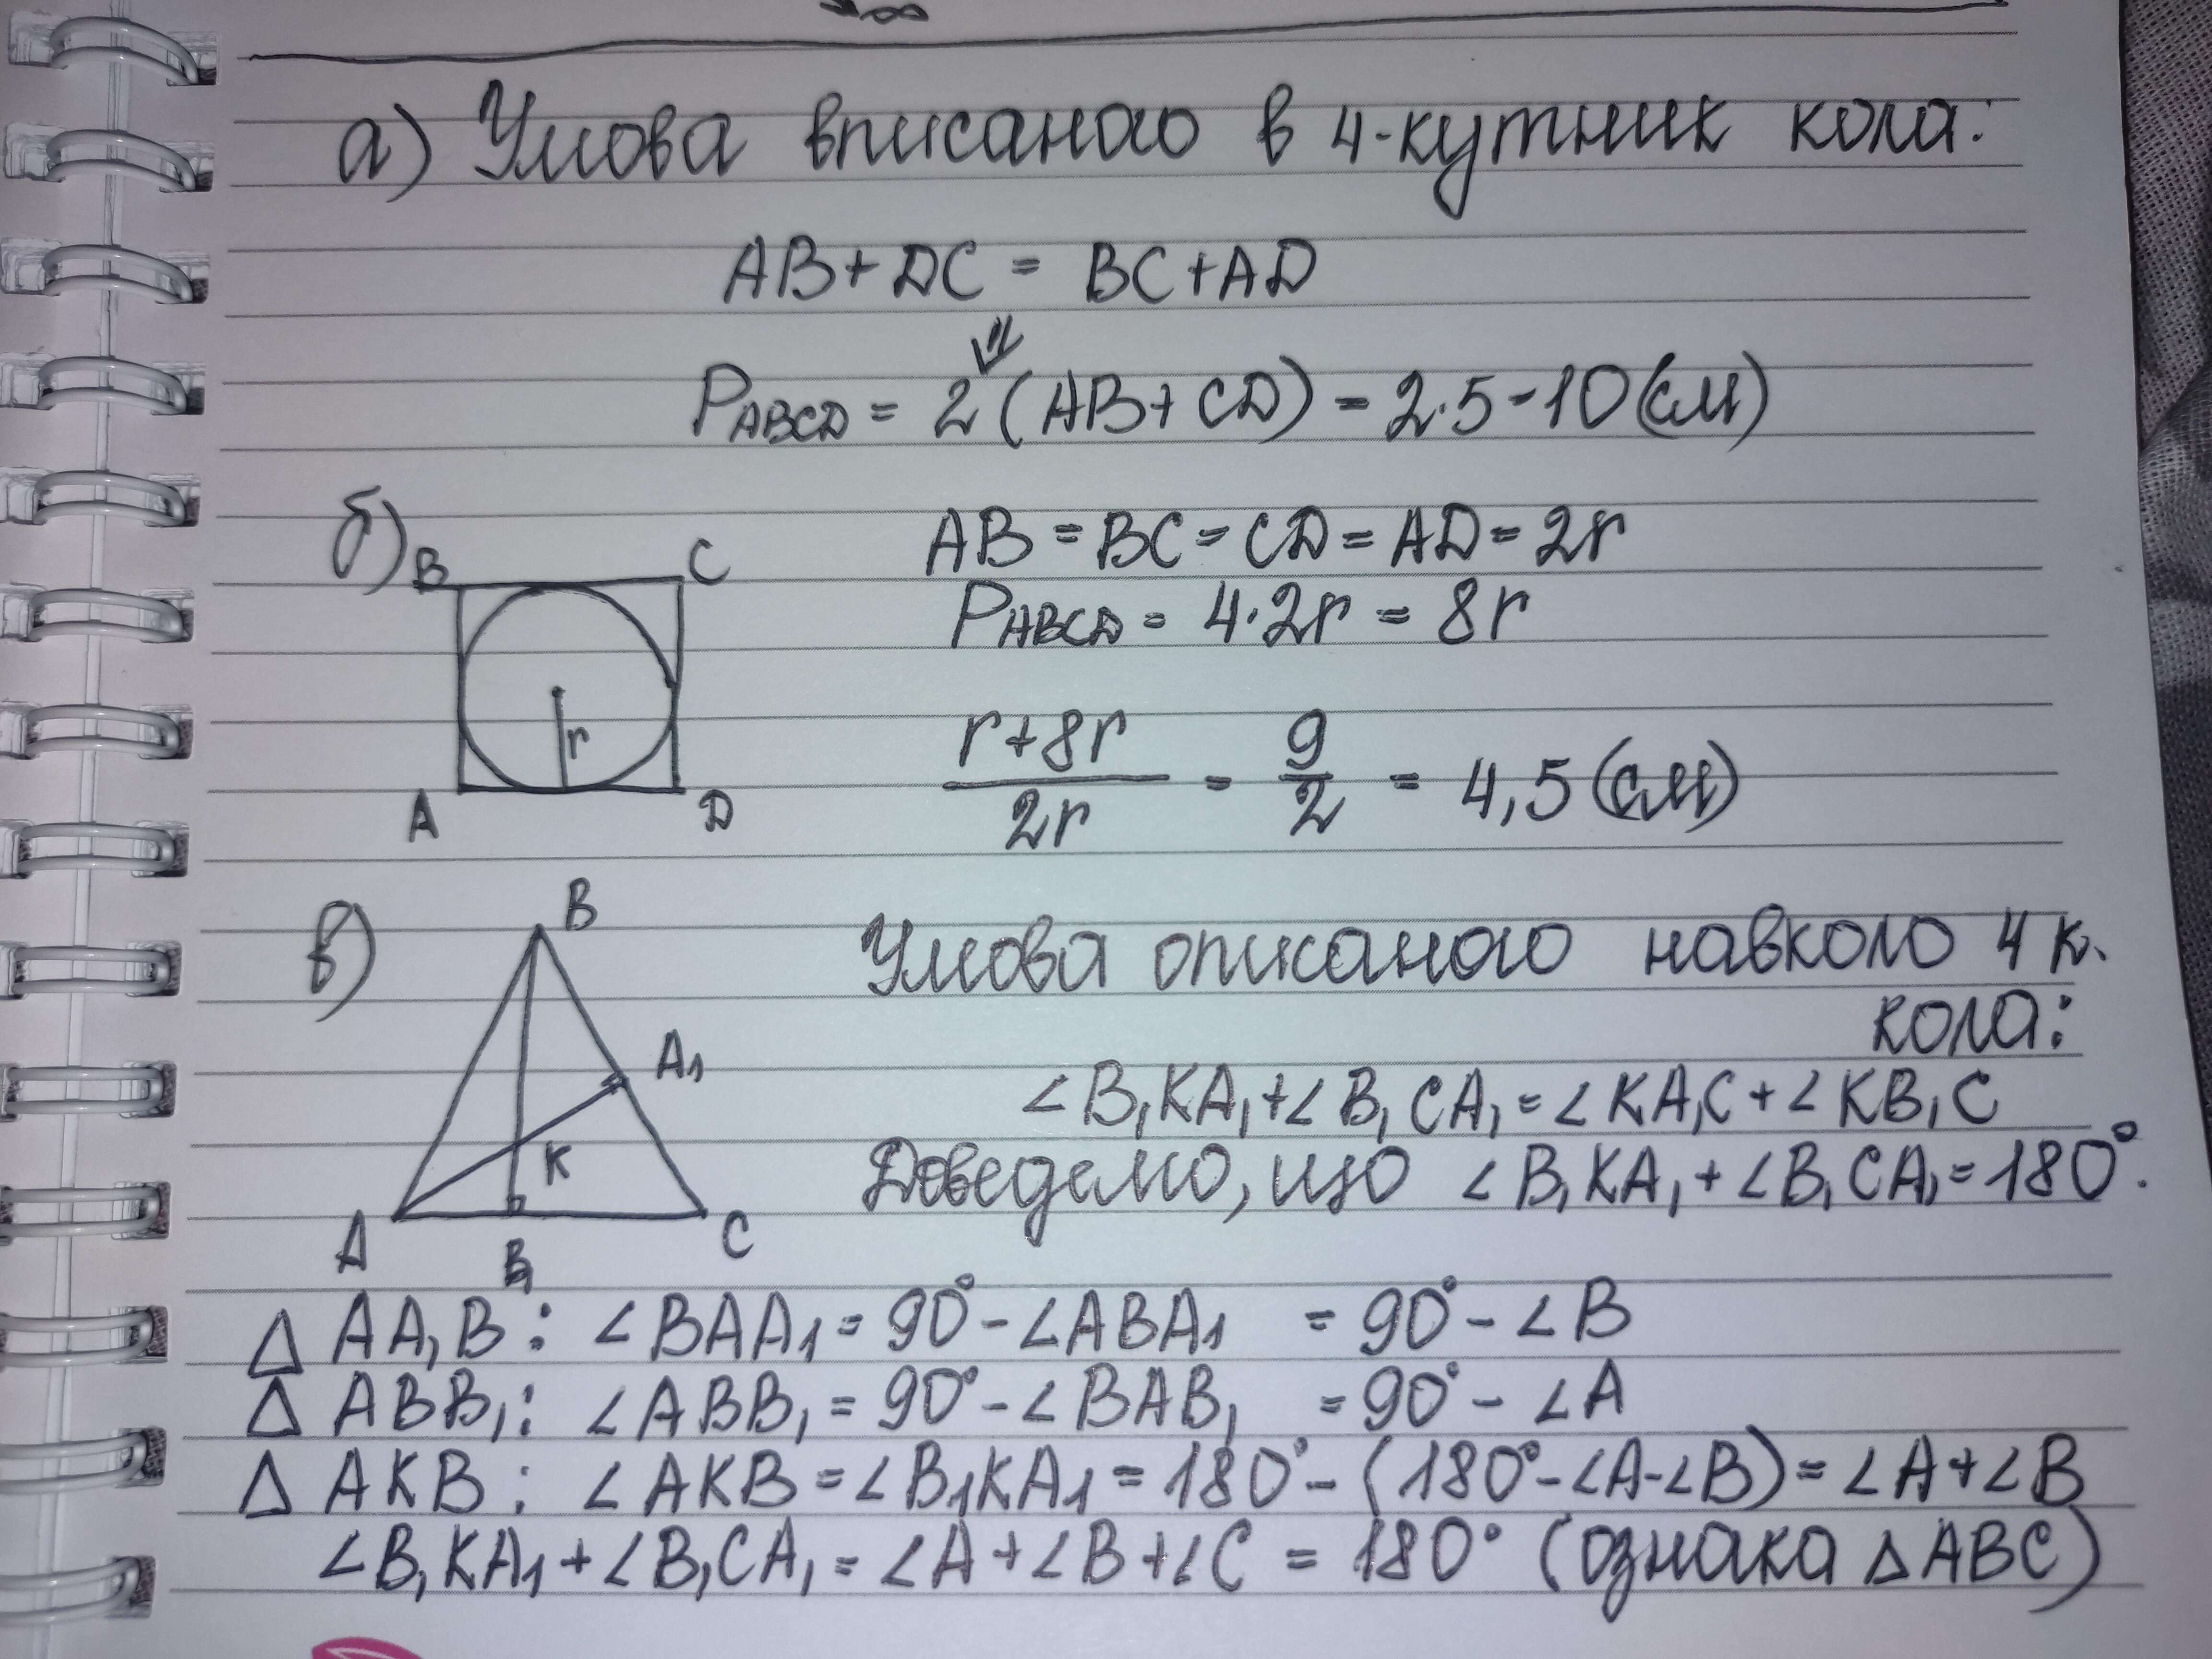 а) Умова вписаного в 4-кутник кола:
AB+DC = BC+AD
P_ABCD = 2(AB+CD) = 2·5=10(см)
б) B C
AB=BC=CD=AD=2r
P_ABCD = 4·2r = 8r
r
(r+8r)/2r = 9/2 = 4,5(см)
A D
в) B
Умова описаного навколо 4 к.
кола:
A₁
∠B₁KA₁+∠B₁CA₁=∠KA₁C+∠KB₁C
K
Доведемо, що ∠B₁KA₁+∠B₁CA₁=180°.
A B₁ C
△ AA₁B: ∠BAA₁=90°-∠ABA₁ =90°-∠B
△ ABB₁: ∠ABB₁=90°-∠BAB₁ =90°-∠A
△ AKB: ∠AKB=∠B₁KA₁=180°-(180°-∠A-∠B)=∠A+∠B
∠B₁KA₁+∠B₁CA₁=∠A+∠B+∠C=180° (ознака △ABC)